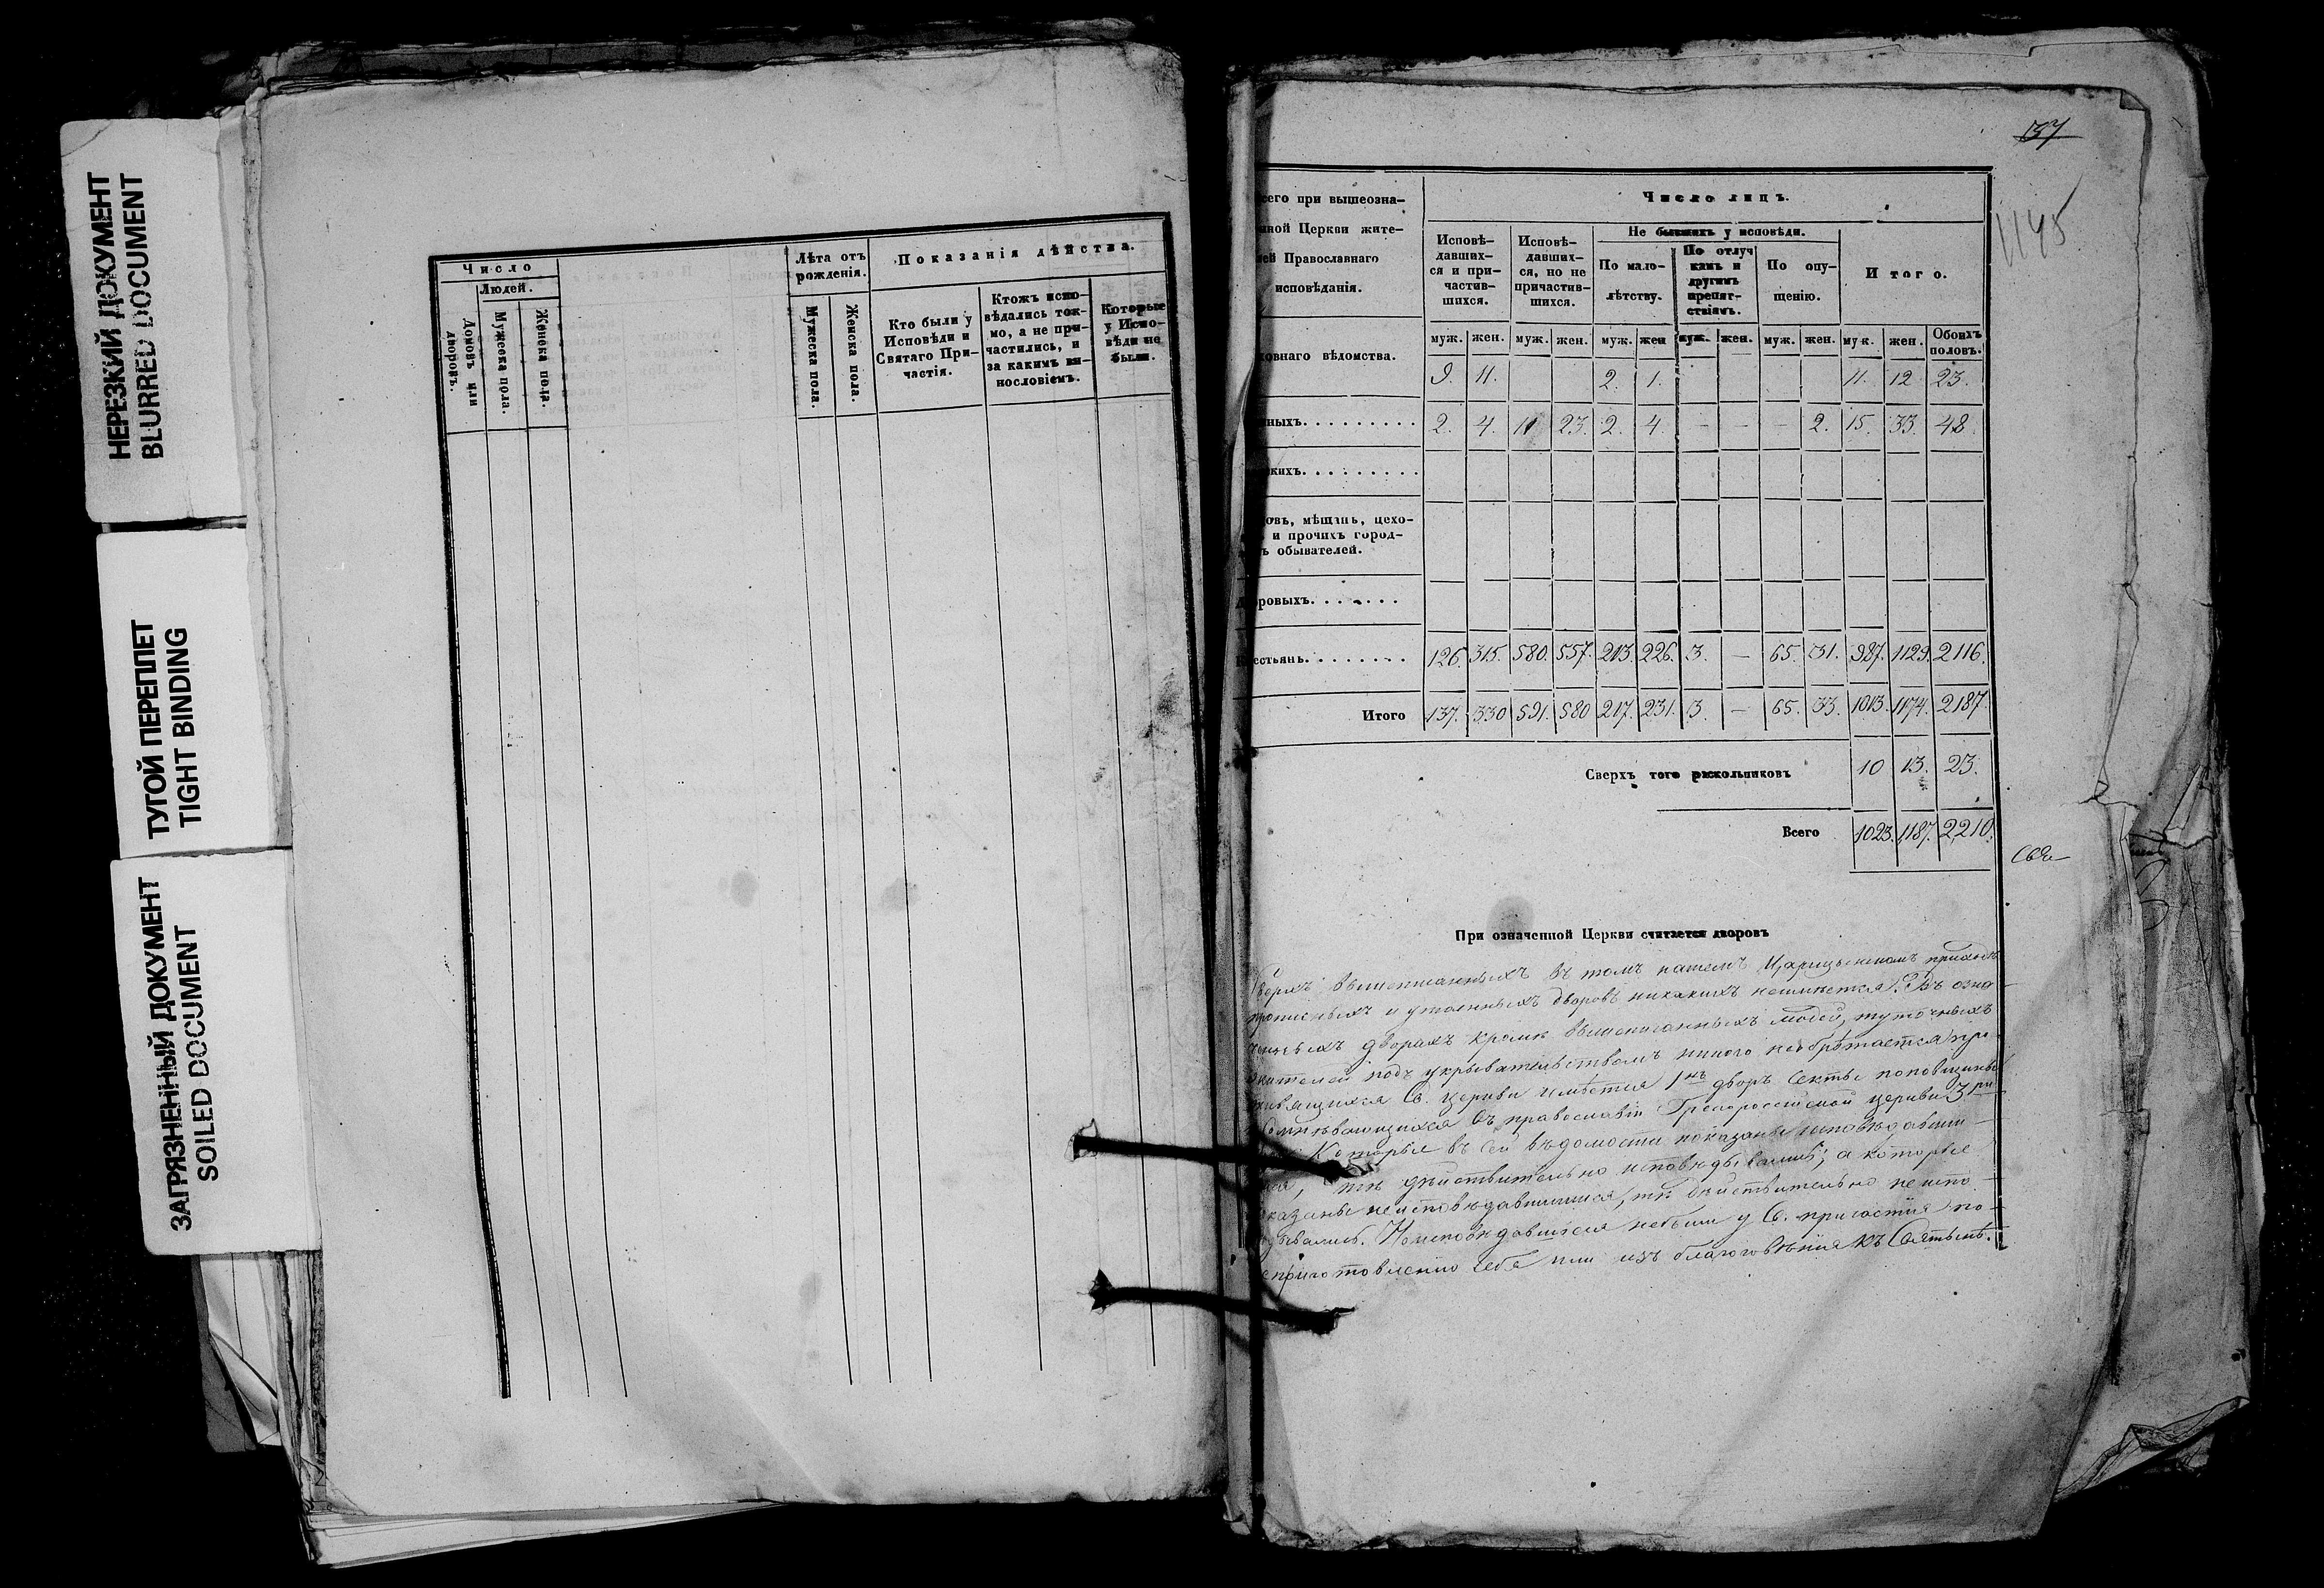 НЕРЕЗКИЙ ДОКУМЕНТ
BLURRED DOCUMENT
ТУГОЙ ПЕРЕПЛЕТ
TIGHT BINDING
ЗАГРЯЗНЕННЫЙ ДОКУМЕНТ
SOILED DOCUMENT
Число
Людей.
Домовъ или дворовъ.
Мужеска пола.
Женска пола.
Лѣта отъ
рожденія.
Мужеска пола.
Женска пола.
Показанія дѣйства.
Кто были у
Исповѣди и
Святаго При-
частія.
Ктожъ испо-
вѣдались ток-
мо, а не при-
частились, и
за какимъ ви-
нословіемъ.
Которые
у Испо-
вѣди не
были.
137
1145
сего при вышеозна-
нной Церкви жите-
лей Православнаго
исповѣданія.
Число лицъ.
Исповѣ-
давших-
ся и при-
частив-
шихся.
Исповѣ-
давших-
ся, но не
причастив-
шихся.
Не бывшихъ у исповѣди.
По мало-
лѣтству.
По отлуч
камъ и
другимъ
препят-
ствіямъ.
По опу-
щенію.
Итого.
муж. жен. муж. жен. муж. жен муж. жен. муж. жен. муж. жен. Обоихъ половъ.
ховнаго вѣдомства. 9. 11. 2. 1. 11. 12. 23.
нныхъ......... 2. 4. 11 23. 2. 4. – – – 2. 15. 33. 48.
кихъ.........
овъ, мѣщанъ, цехо-
и прочихъ город-
ъ обывателей.
Дворовыхъ.......
Крестьянъ........ 126. 315. 580. 557. 213. 226. 3. – 65. 31. 987. 1129. 2116.
Итого 137. 330 591. 580 217. 231. 3. – 65. 33. 1013. 1174. 2187.
Сверхъ того раскольниковъ 10 13. 23.
Всего 1023. 1187. 2210.
При означенной Церкви считается дворовъ
Сверхъ вышеписанныхъ въ томъ нашемъ Царицынскомъ приходѣ
прописныхъ и утаенныхъ дворовъ никакихъ неимѣется. Въ озна-
ченныхъ дворахъ кромѣ вышеписанныхъ людей, туточныхъ
жителей подъ укрывательствомъ никого необрѣтается, про-
тивящихся С. церкви имѣется 1нъ дворъ секты поповщины
Сомнѣвающихся въ православіи Грекороссійской церкви 3ри
Которые въ сей вѣдомости показаны исповѣдавши-
ся, тѣ дѣйствительно исповѣдывались; а которые
показаны неисповѣдавшимися, тѣ дѣйствительно неиспо-
вѣдывались. Исповѣдавшіеся небыли у С. причастія по-
неприготовленію себя или изъ благоговѣнія къ Святынѣ.